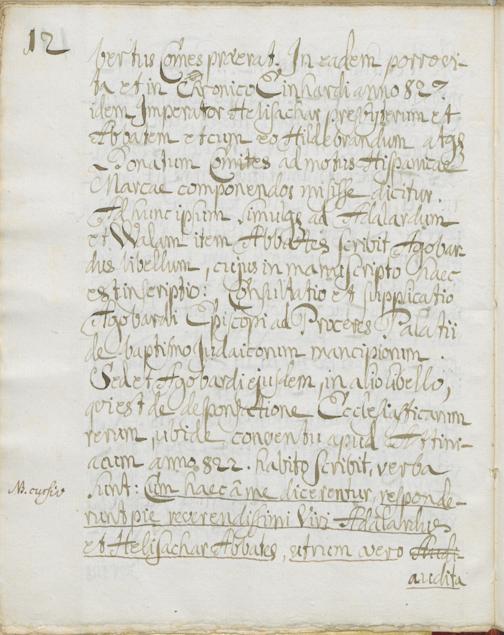 12
bertus Comes praeerat. In eadem porro vi-
ta et in Chronico Einhardi anno 827.
idem Imperator Helisachar presbyterum et
Abbatem et cum eo Hildebrandum atqs
Donatum Comites ad motus Hispanicae
Marcae componendos misisse dicitur.
Ad hunc ipsum, simulqs ad Adalardum
et Walam item Abbates scribit Agobar
dus libellum, cujus in manuscripto haec
est inscriptio: Consultatio et supplicatio
Agobardi Episcopi ad Proceres Palatii
de baptismo Judaicorum mancipiorum.
Sed et Agobardi ejusdem in alio libello,
qui est de dispensatione Ecclesiasticarum
rerum, ubi de conventu apud Attini-
acum anno 822. habito scribit, verba
NB. cursiv
sunt: Cum haec à me dicerentur, responde-
runt pie reverendissimi Viri Adalardus
et Helisachar Abbates, utrum vero
audita